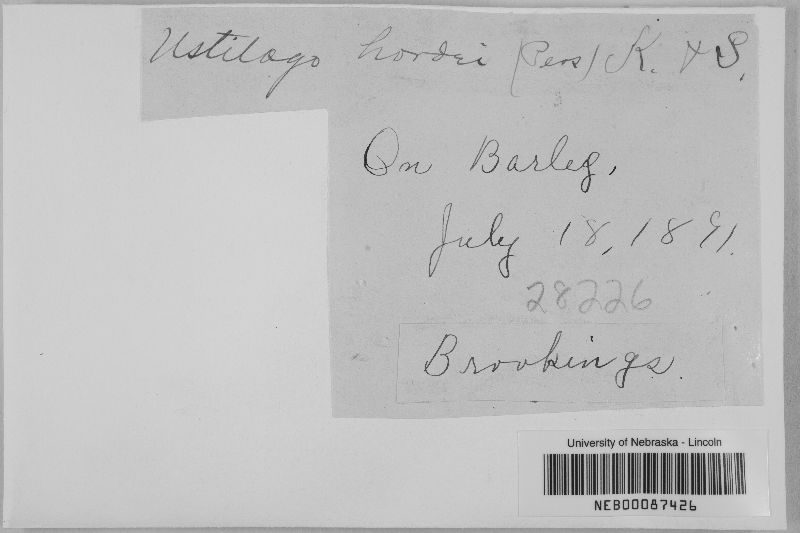 Ustilago hordei (Pers) K. & S.
On Barley,
July 18, 1891.
28226
Brookings.
University of Nebraska - Lincoln
NEB00087426